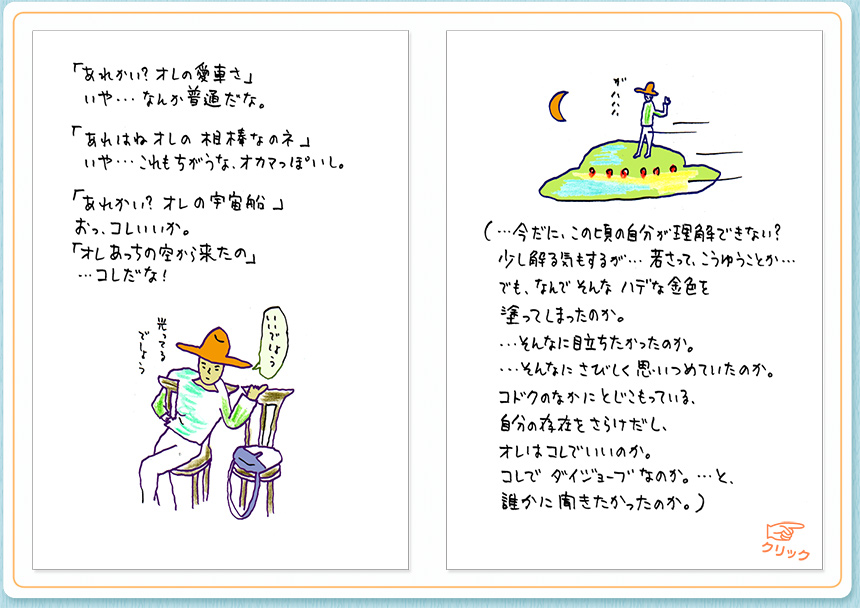 「あれかい？オレの愛車さ」
いや…なんか普通だな。
「あれはねオレの相棒なのネ」
いや…これもちがうな、オカマっぽいし。
「あれかい？オレの宇宙船」
おっ、コレいいか。
「オレあっちの空から来たの」
…コレだな！
いいでしょう
光ってる
でしょう
がハハハ
（…今だに、この頃の自分が理解できない？
少し解る気もするが…若さって、こうゆうことか…
でも、なんでそんなハデな金色を
塗ってしまったのか。
…そんなに目立ちたかったのか。
…そんなにさびしく思いつめていたのか。
コドクのなかにとじこもっている、
自分の存在をさらけだし、
オレはコレでいいのか。
コレでダイジョーブなのか。…と、
誰かに聞きたかったのか。）
クリック